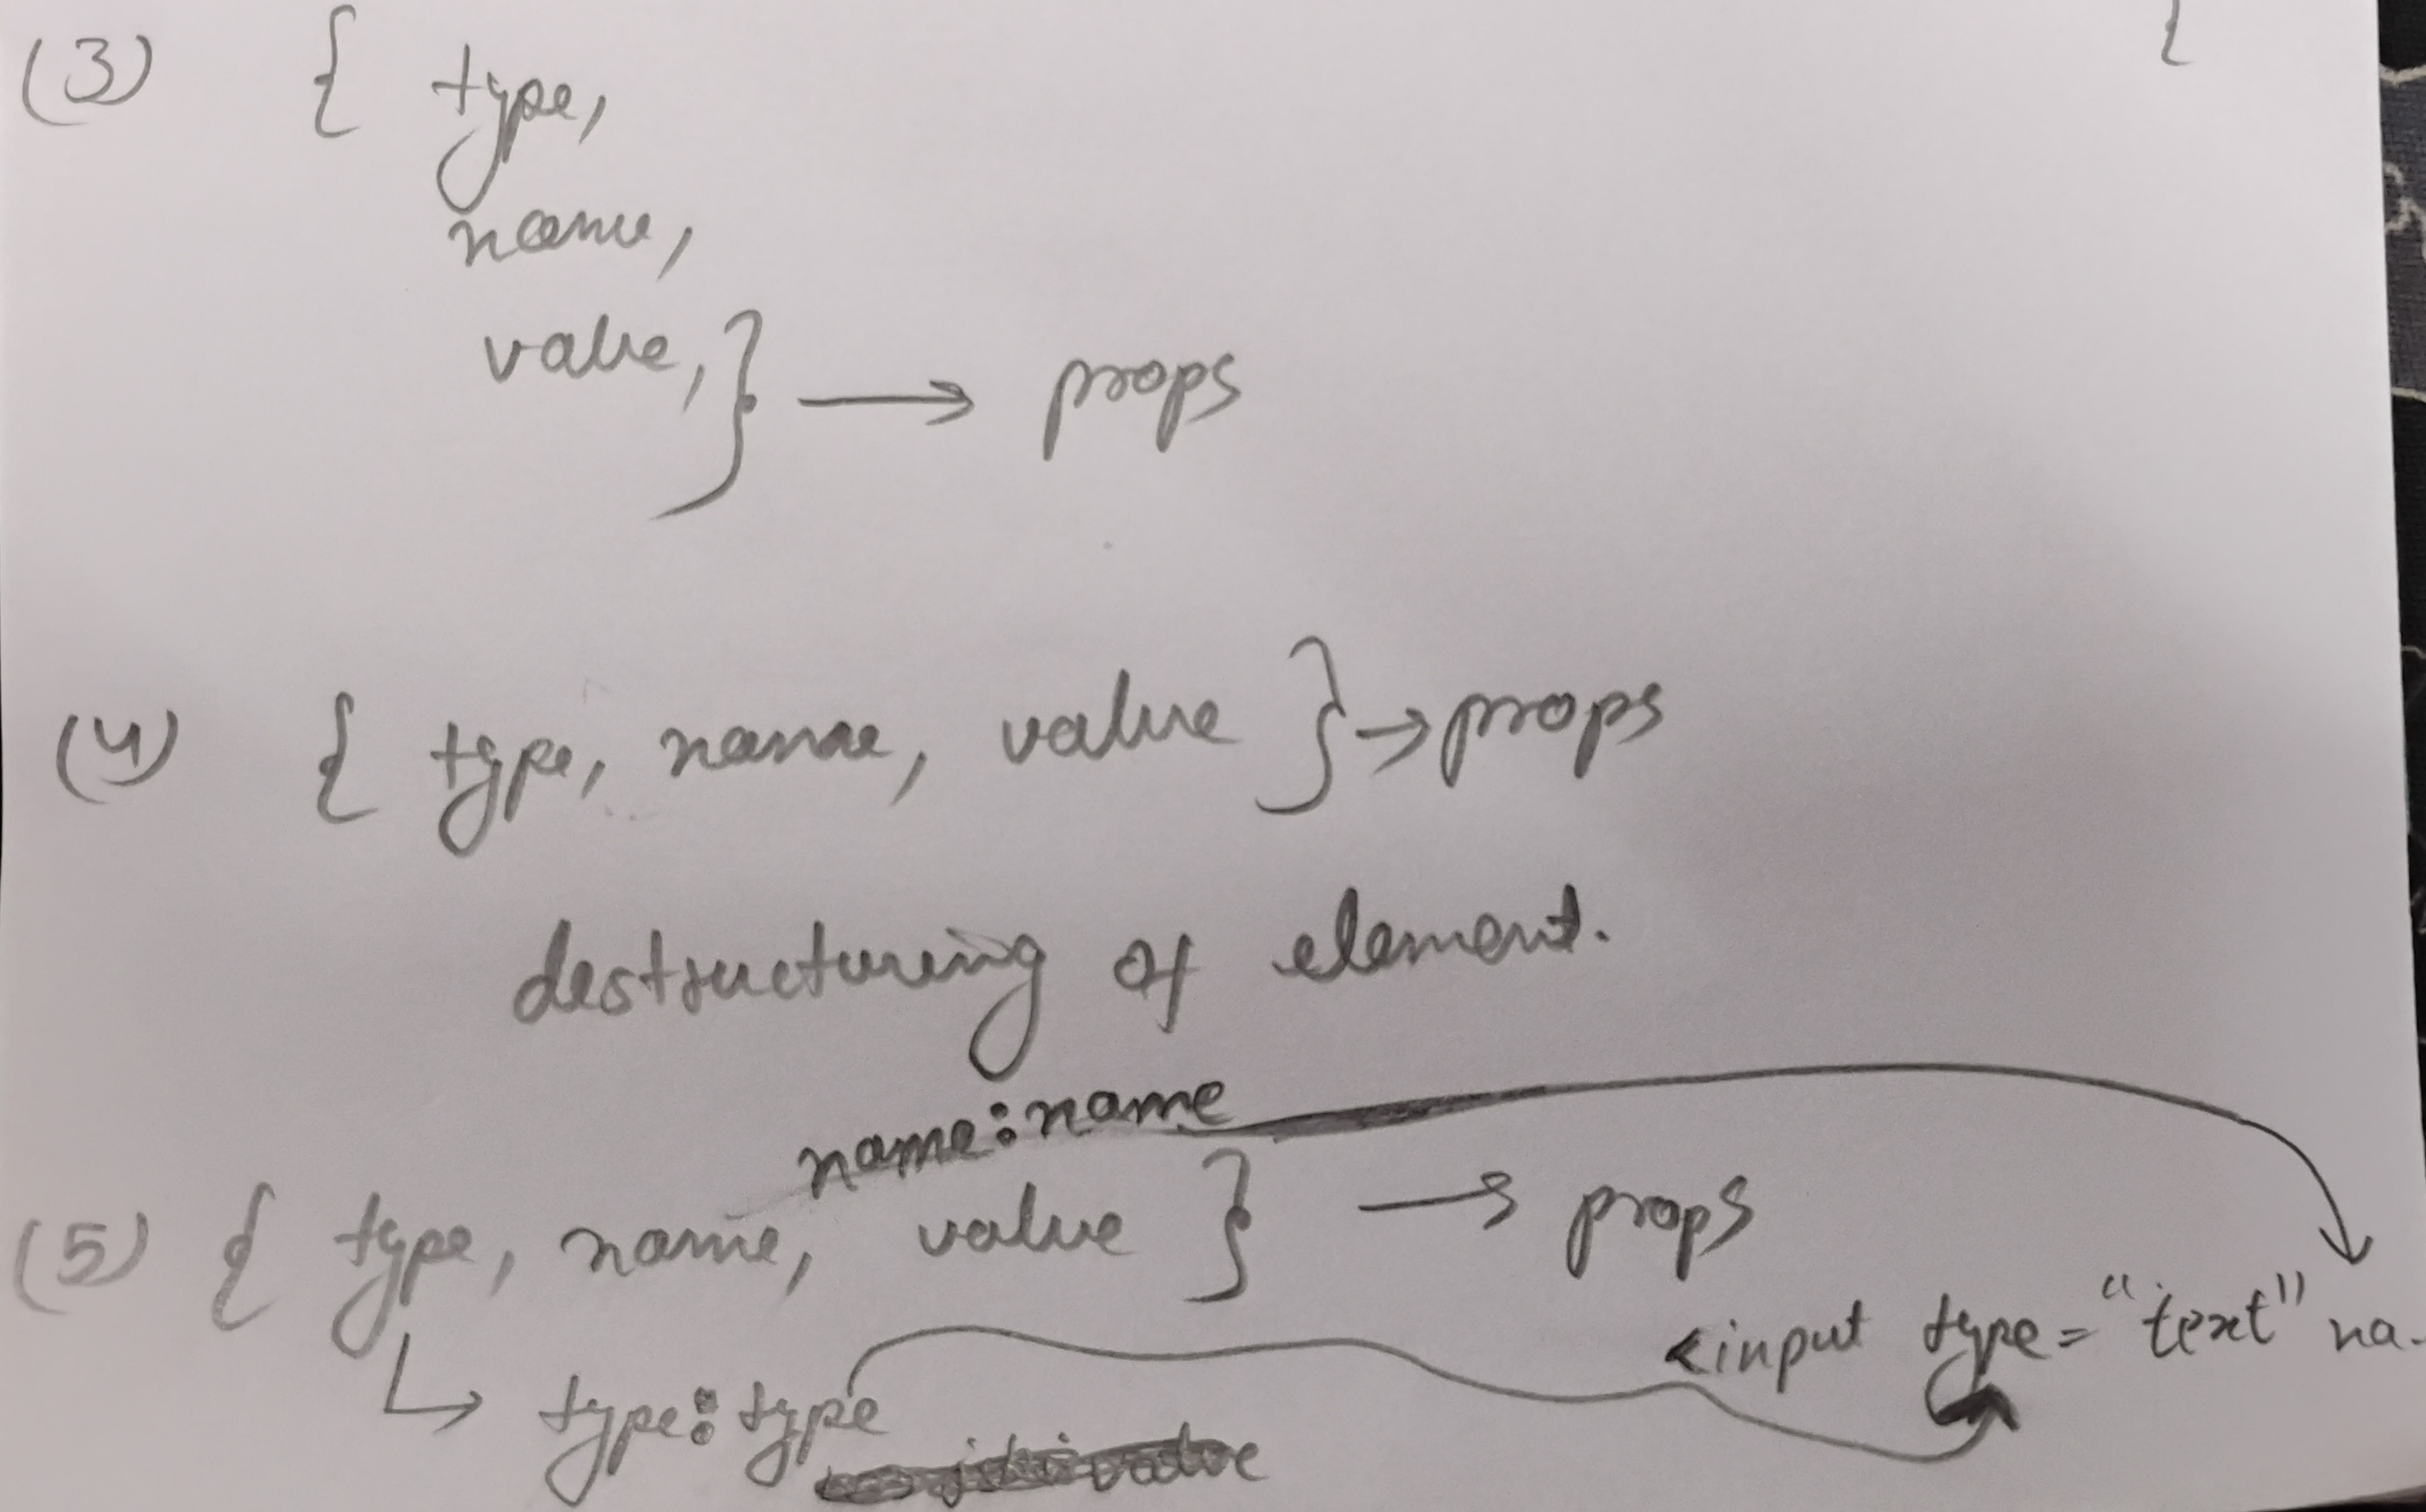 (3) { type,
name,
value,} → props
{
(4) { type, name, value } → props
destructuring of element.
name:name
(5) { type, name, value } → props
<input type="text" na-
↳ type:type